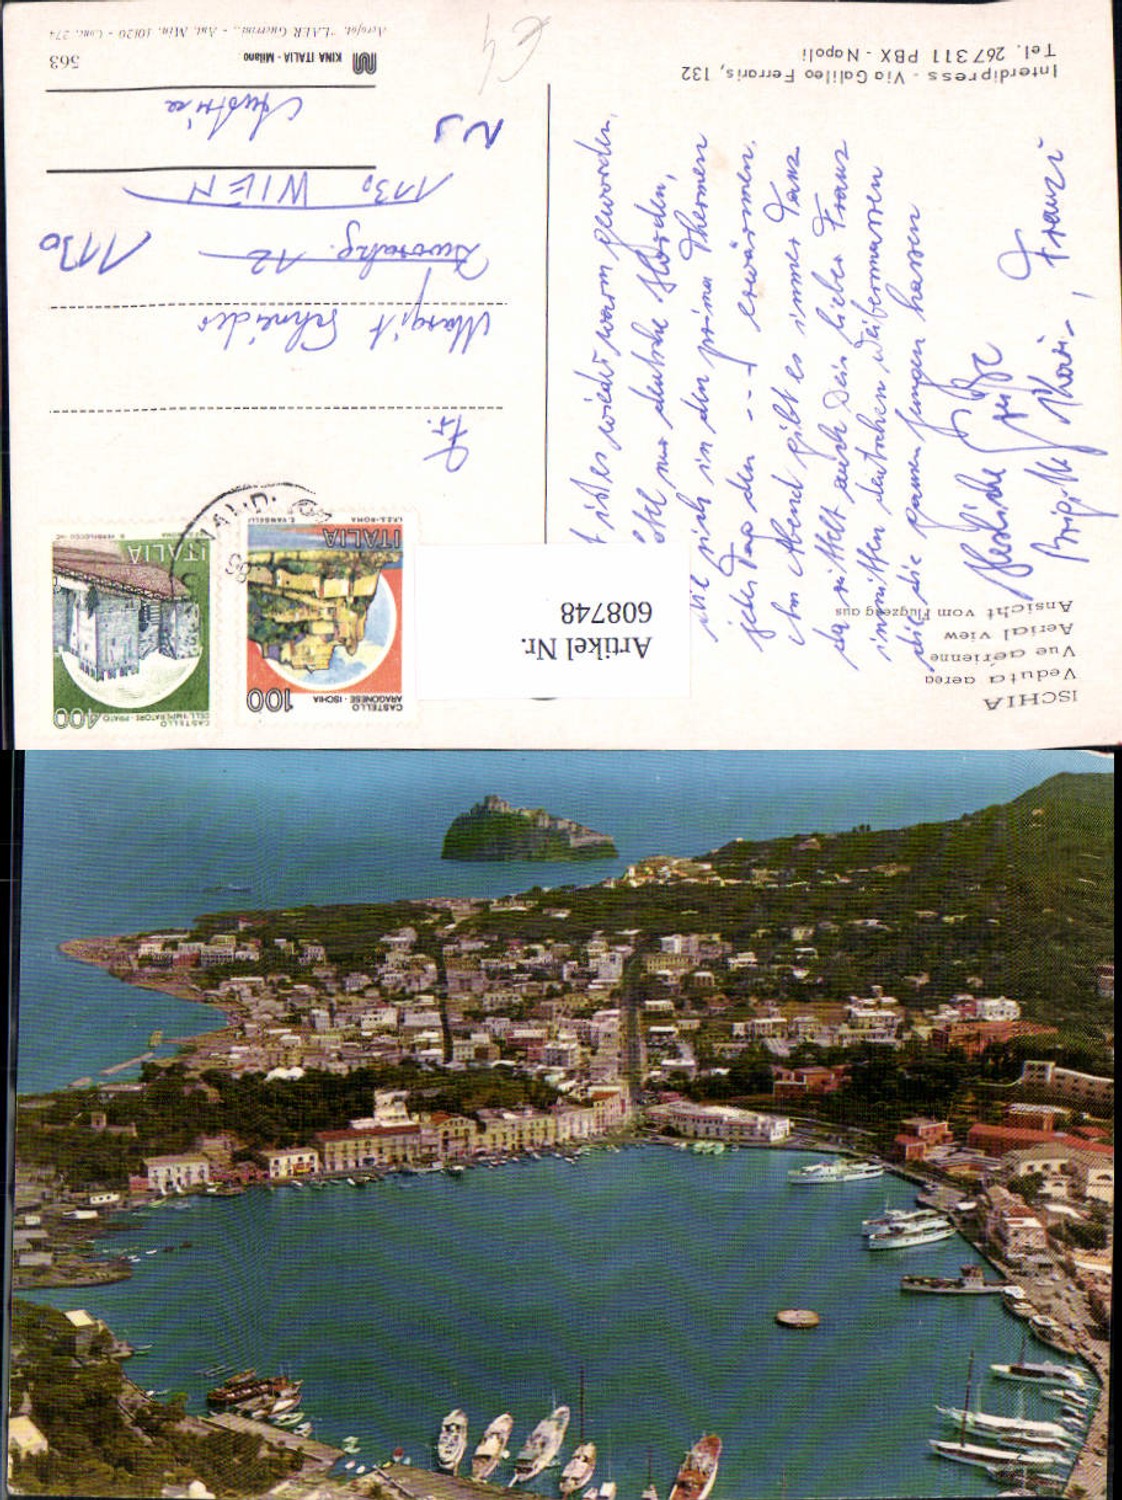 ISCHIA
Veduta aerea
Vue aérienne
Aerial view
Ansicht vom Flugzeug aus
ist es wieder warm geworden,
nur deutsche Horden,
die sich in den prima Thermen
jeden Tag den --- erwärmen.
Am Abend gibt es immer Tanz
da mittelt auch Dein lieber Franz
inmitten deutschen Weibermassen
die die jungen hassen
Herzliche
Brigitte , Franzi
Interdipress - Via Galileo Ferraris, 132
Tel. 267311 PBX - Napoli
CASTELLO
ARAGONESE - ISCHIA
100
ITALIA
I.P.Z.S.-ROMA
E. VANGELLI
CASTELLO
DELL'IMPERATORE - PRATO
400
ITALIA
Fr.
Margit Schneider
12
1130
1130 WIEN
NS
Austria
563
KINA ITALIA - Milano
Aerofot. "LAER Guerrini„ - Aut. Min. 10120 - Conc. 274
€ 4
Artikel Nr.
608748